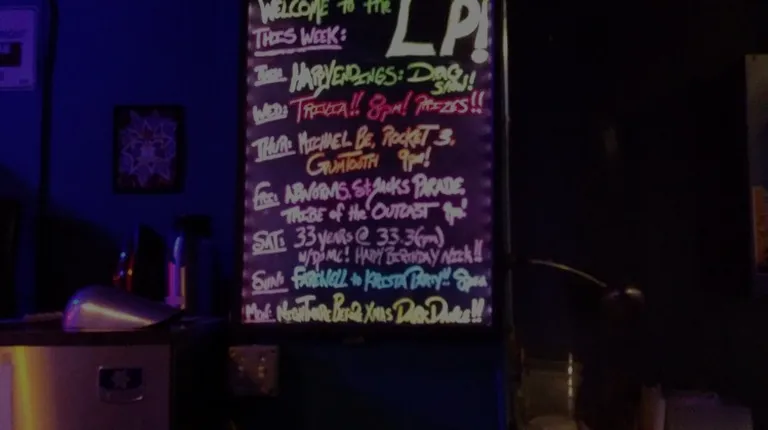 WELCOME to the LP!
THIS WEEK:
TUES: HAPPY ENDINGS: DRAG SHOW!
WED: TRIVIA!! 8pm! PRIZES!!
THUR: MICHAEL BE, ROCKET 3,
GUMTOOTH 9pm!
FRI: ABNORMS, St JACKS PARADE,
TRIBE of the OUTCAST 9pm!
SAT: 33 YEARS @ 33.3(rpm)
HAPPY BIRTHDAY NICK!!
SUN: FAREWELL to KRISTA PARTY!! 8pm
MON: XMAS DARK DANCE!!